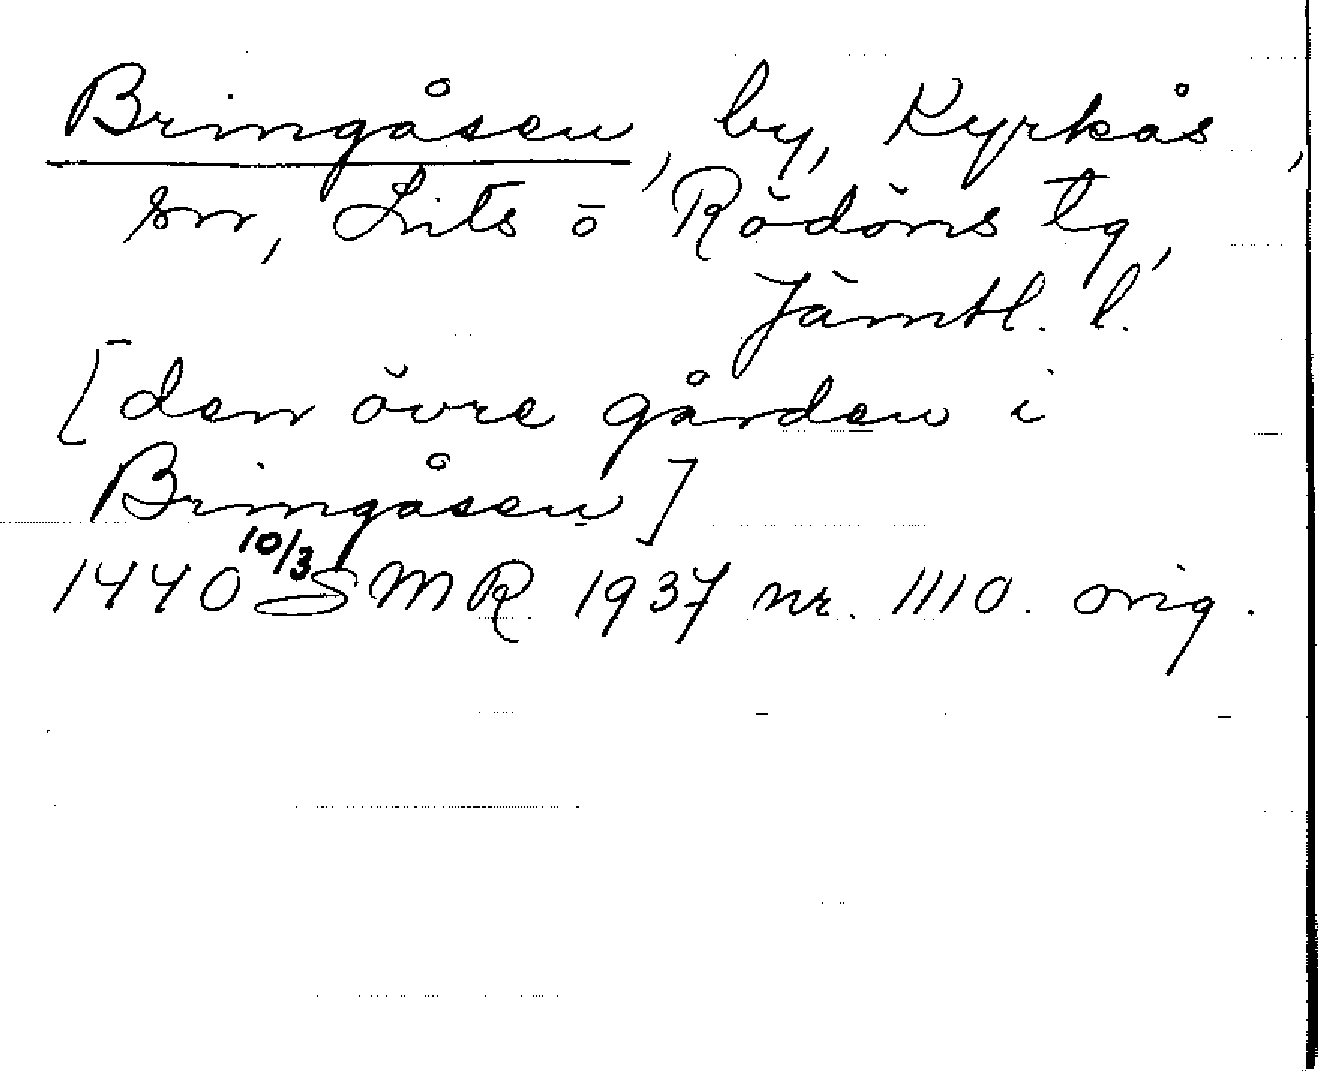 Bringåsen, by, Kyrkås,
sn, Lits o Rödöns tg,
Jämtl. l.
[den övre gården i
Bringåsen]
1440 10/3 SMR 1937 nr. 1110. orig.